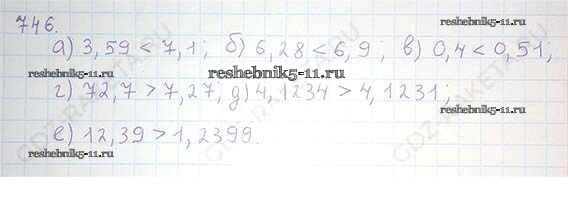 746.
а) 3,59 < 7,1; б) 6,28 < 6,9; в) 0,4 < 0,51;
reshebnik5-11.ru
г) 72,7 > 7,27; д) 4,1234 > 4,1231;
reshebnik5-11.ru
reshebnik5-11.ru
е) 12,39 > 1,2399.
reshebnik5-11.ru
reshebnik5-11.ru
GDZ-RAKETA.RU